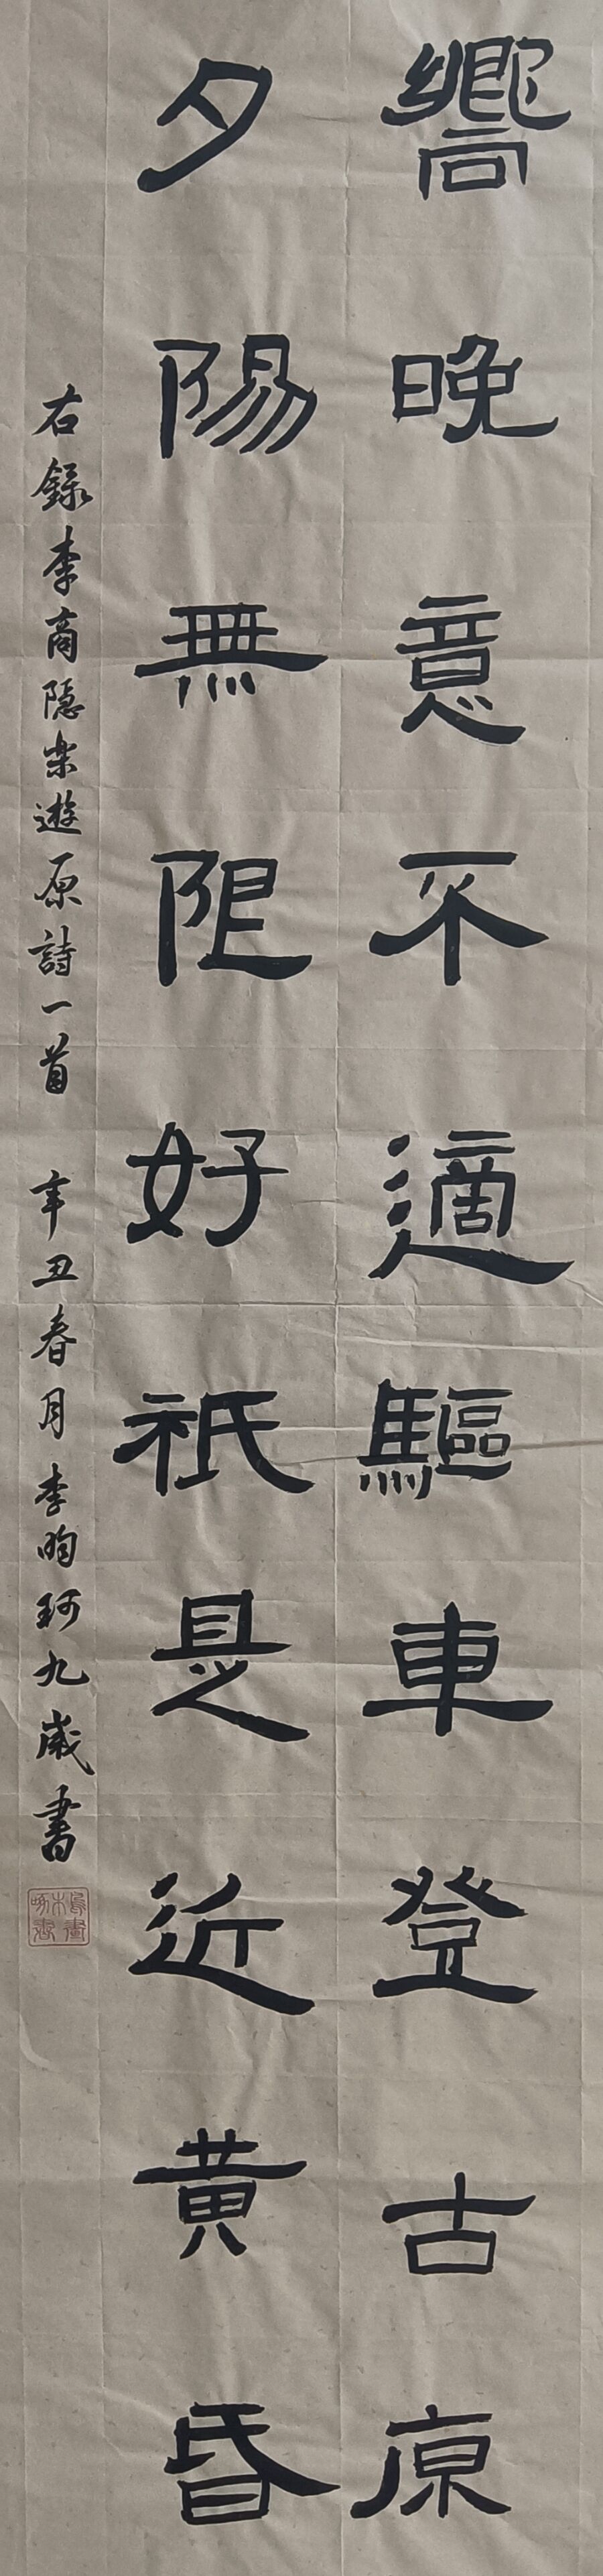 嚮晚意不適驅車登古原
夕陽無限好祇是近黄昏
右錄李商隐樂遊原詩一首 辛丑春月李昀珂九歲書